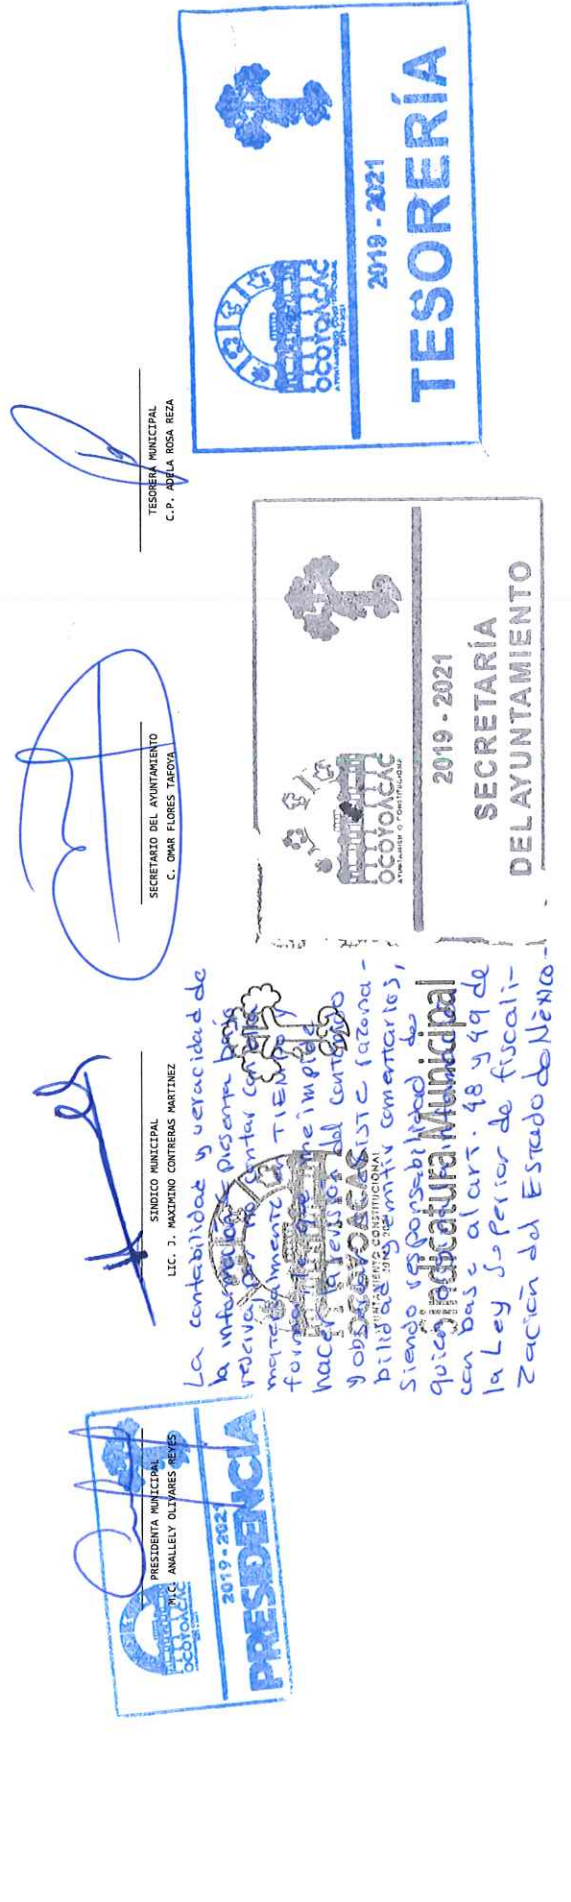 PRESIDENTA MUNICIPAL
M.C. ANALLELY OLIVARES REYES
OCOYOACAC
2019-2021
PRESIDENCIA
SINDICO MUNICIPAL
LIC. J. MAXIMINO CONTRERAS MARTINEZ
La contabilidad y veracidad de
la información presenta bajo
reserva por no contar con ella
materialmente a TIEMPO y
forma lo que me impide
hacer la revisión del contenido
y observar si existe razona-
bilidad y emitir comentarios,
Siendo responsabilidad de
quien
con base al art. 48 y 49 de
la Ley Superior de fiscali-
zación del Estado de México-
OCOYOACAC
AYUNTAMIENTO CONSTITUCIONAL
Sindicatura Municipal
SECRETARIO DEL AYUNTAMIENTO
C. OMAR FLORES TAFOYA
OCOYOACAC
2019 - 2021
SECRETARÍA
DEL AYUNTAMIENTO
TESORERA MUNICIPAL
C.P. ADELA ROSA REZA
OCOYOACAC
AYUNTAMIENTO CONSTITUCIONAL
2019-2021
2019 - 2021
TESORERÍA